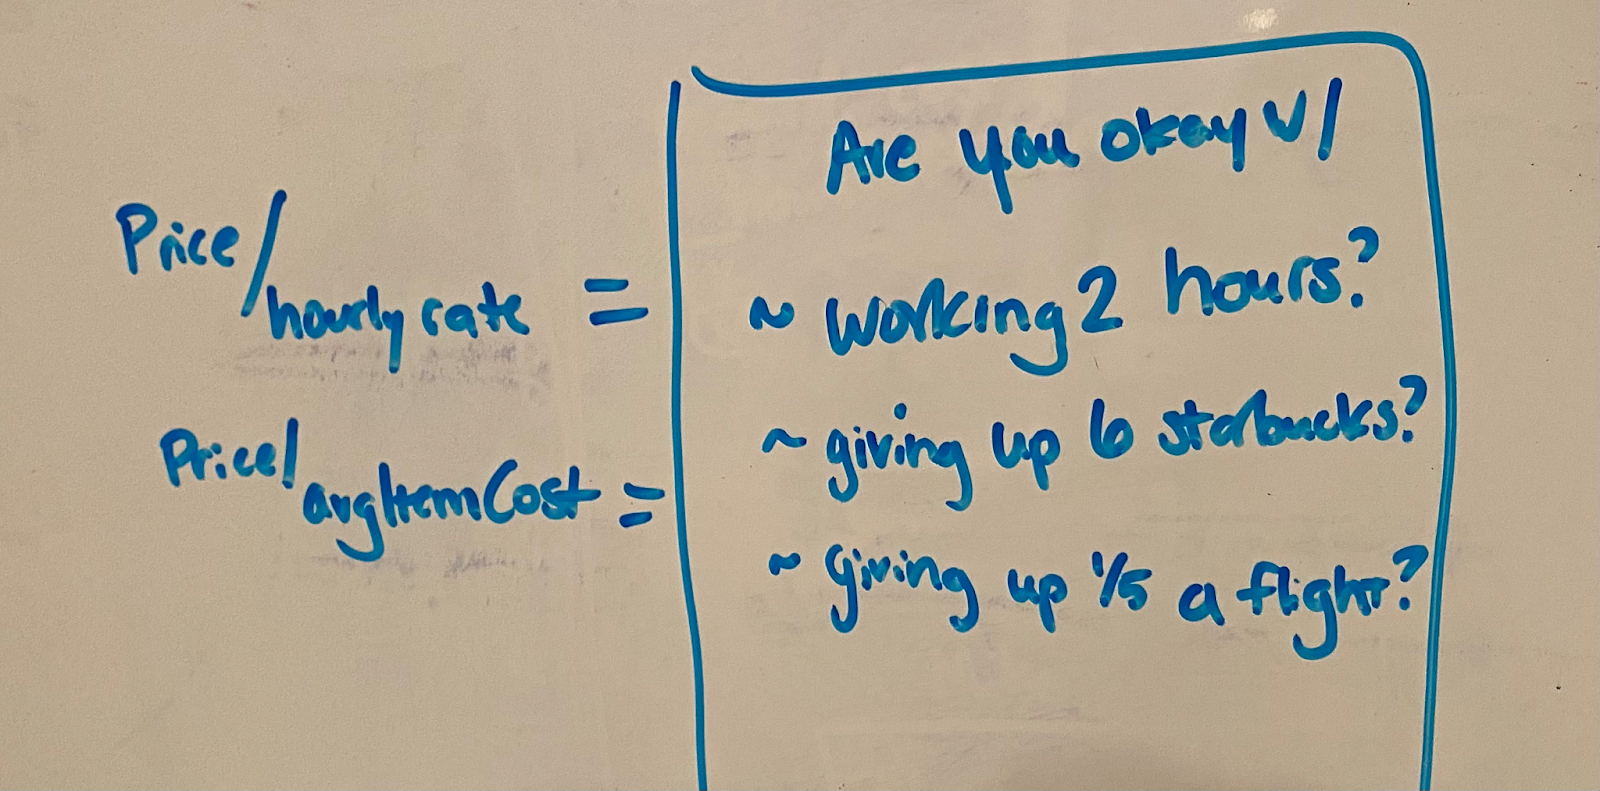 Are you okay w/
Price/hourly rate =
~ working 2 hours?
~ giving up 6 starbucks?
Price/avgItemCost =
~ giving up 1/5 a flight?